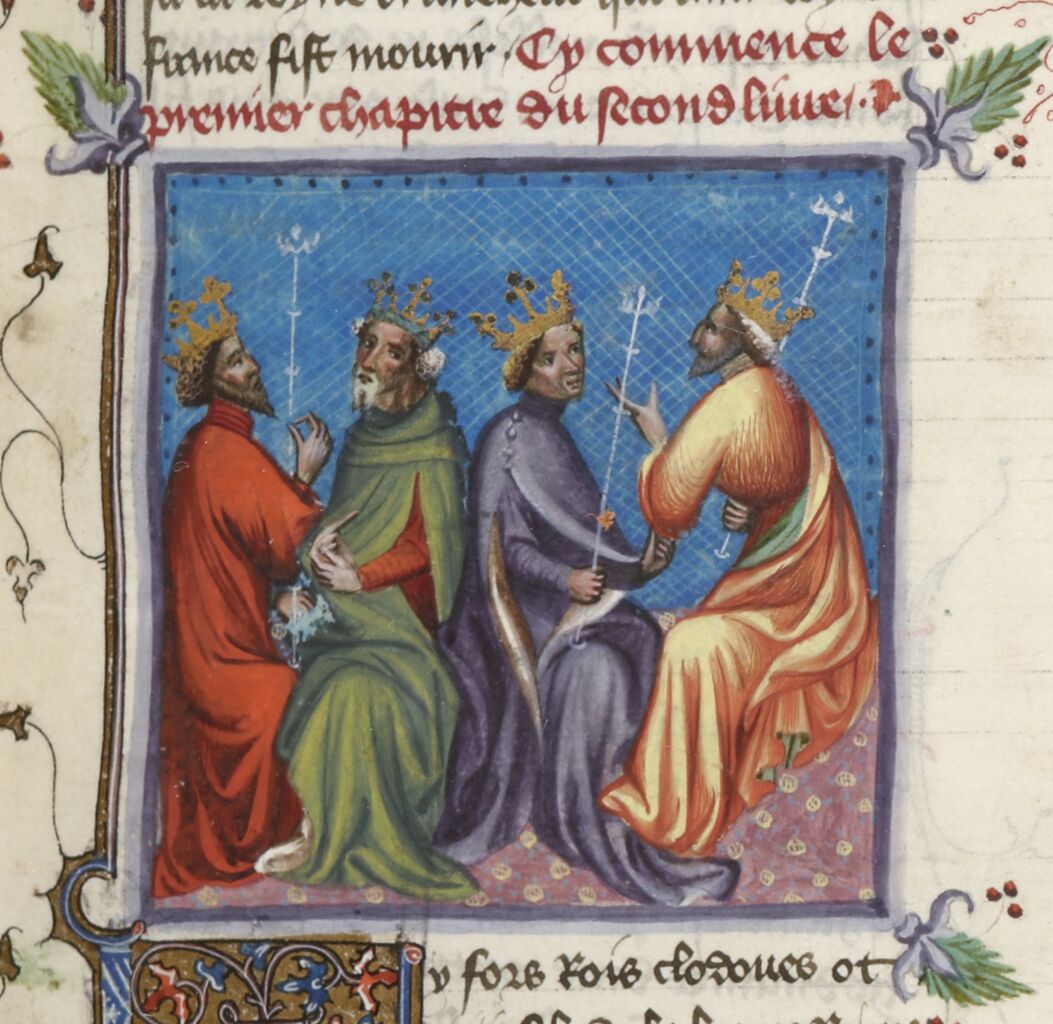 france fist mourir. Cy commence le
premier chapitre du second livre.
y fors Rois clodoues ot